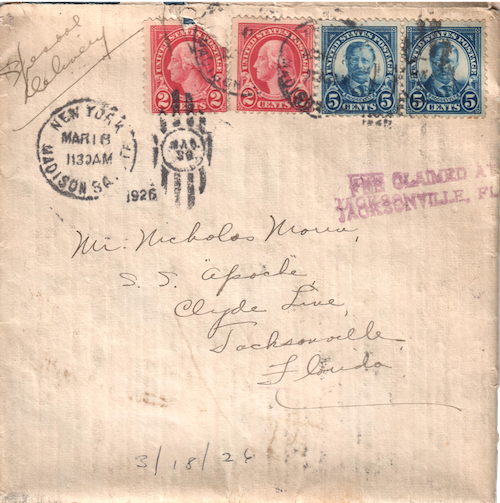 Special
Delivery
UNITED STATES POSTAGE
2 CENTS 2
UNITED STATES POSTAGE
2 CENTS 2
UNITED STATES POSTAGE
ROOSEVELT
5 CENTS 5
UNITED STATES POSTAGE
5 CENTS 5
NEW YORK
MAR 18
1130AM
MADISON SQ.
1926
MAD.
SQ.
1926
FEE CLAIMED A
JACKSONVILLE, F
Mr. Nicholas
S. S. "Apache",
Clyde Line,
Jacksonville,
Florida
3/18/26